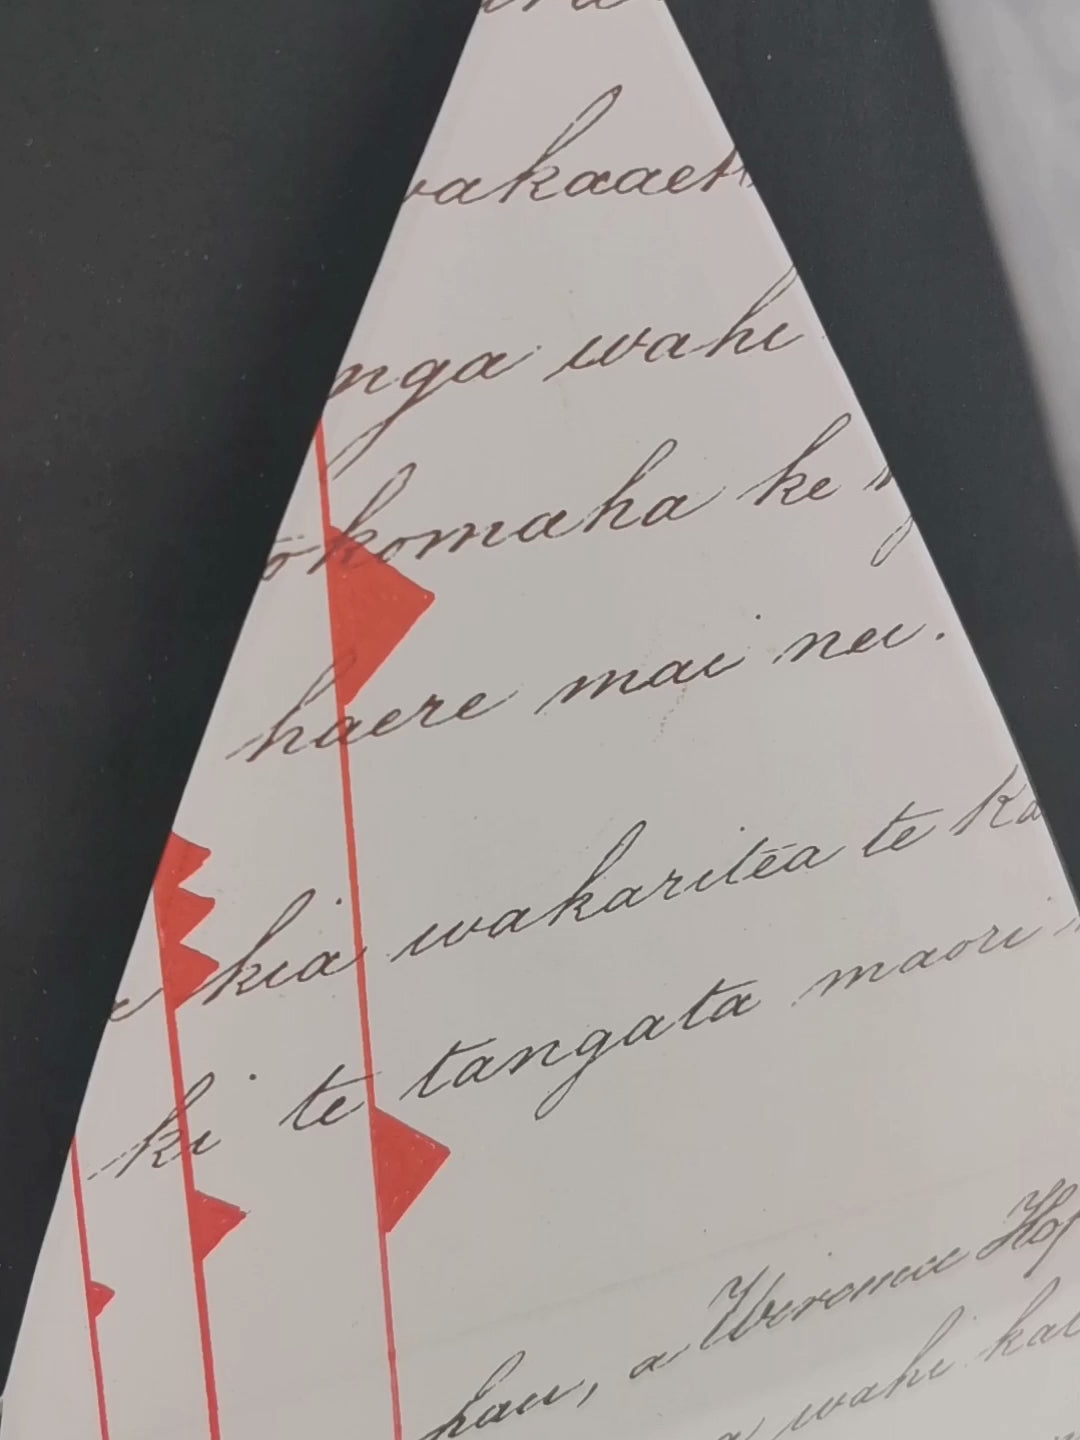 wakaaet
nga wahi
okomaha ke
haere mai nei.
kia wakaritea te Ka
ki te tangata maori
hau, a Wiremu Hop
a wahi kat